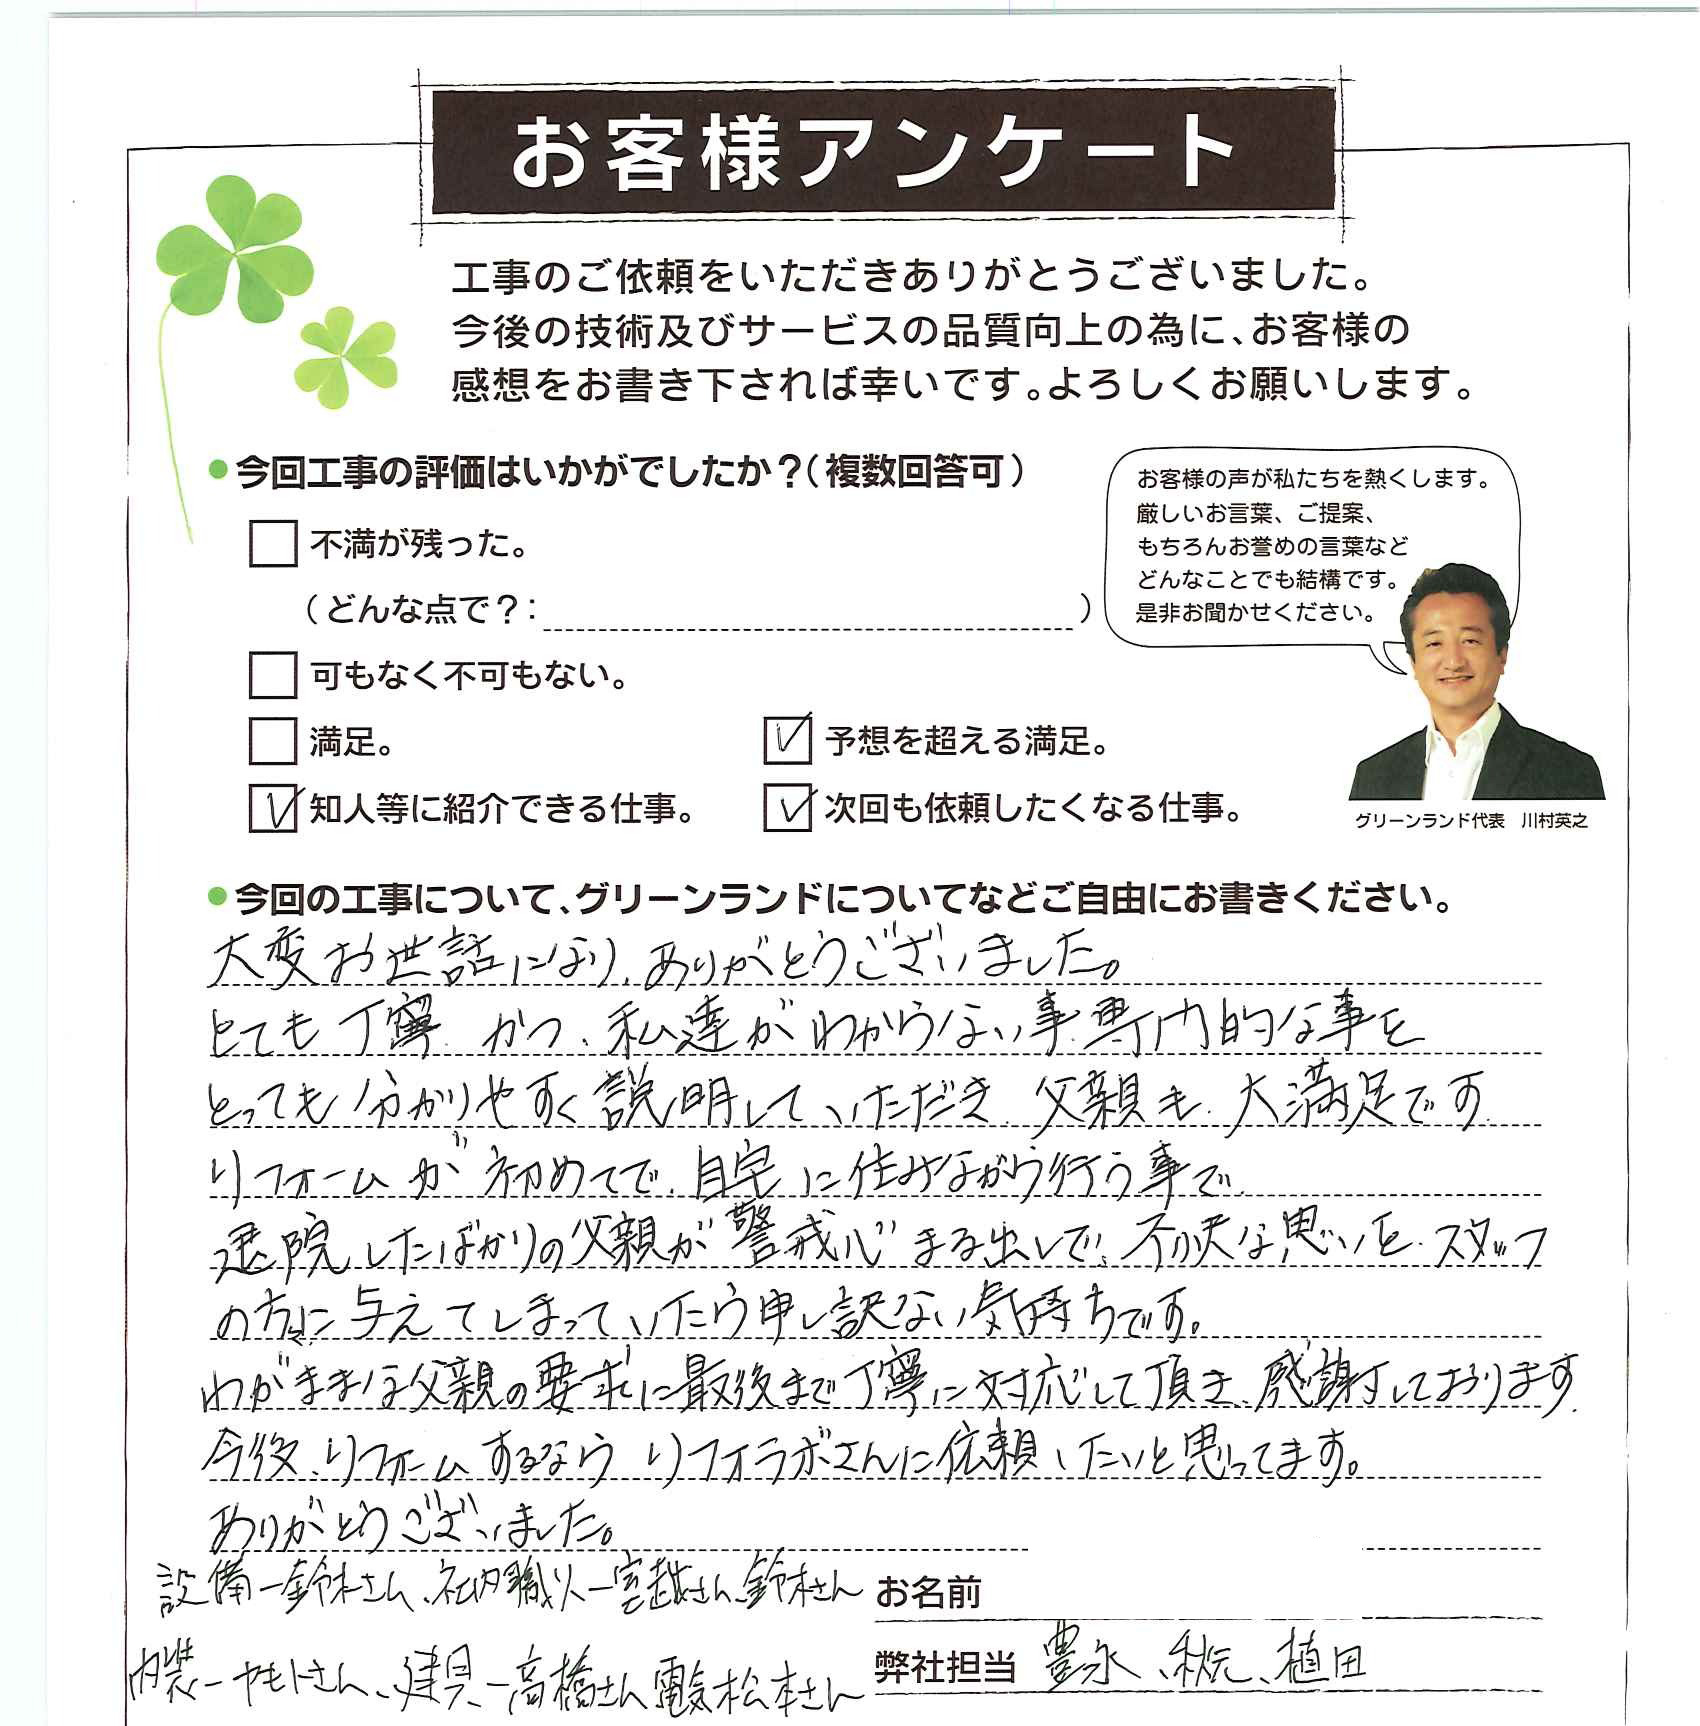 お客様アンケート
工事のご依頼をいただきありがとうございました。
今後の技術及びサービスの品質向上の為に、お客様の
感想をお書き下されば幸いです。よろしくお願いします。
●今回工事の評価はいかがでしたか？（複数回答可）
不満が残った。
（どんな点で？：　）
可もなく不可もない。
満足。
予想を超える満足。
知人等に紹介できる仕事。
次回も依頼したくなる仕事。
お客様の声が私たちを熱くします。
厳しいお言葉、ご提案、
もちろんお誉めの言葉など
どんなことでも結構です。
是非お聞かせください。
グリーンランド代表　川村英之
●今回の工事について、グリーンランドについてなどご自由にお書きください。
大変お世話になり、ありがとうございました。
とても丁寧、かつ、私達がわからない事、専門的な事を
とっても分かりやすく説明していただき、父親も、大満足です。
リフォームが初めてで、自宅に住みながら行う事で、
退院したばかりの父親が警戒心まる出しで、不快な思いを、スタッフ
の方々に与えてしまっていたら申し訳ない気持ちです。
わがままな父親の要求に最後まで丁寧に対応して頂き、感謝しております。
今後、リフォームするなら リフォラボさんに依頼したいと思ってます。
ありがとうございました。
設備ー鈴木さん、社内職人ー宮越さん、鈴木さん
内装ーヤモトさん、建具ー高橋さん 電気 松本さん
お名前
弊社担当 豊永、秋元、植田